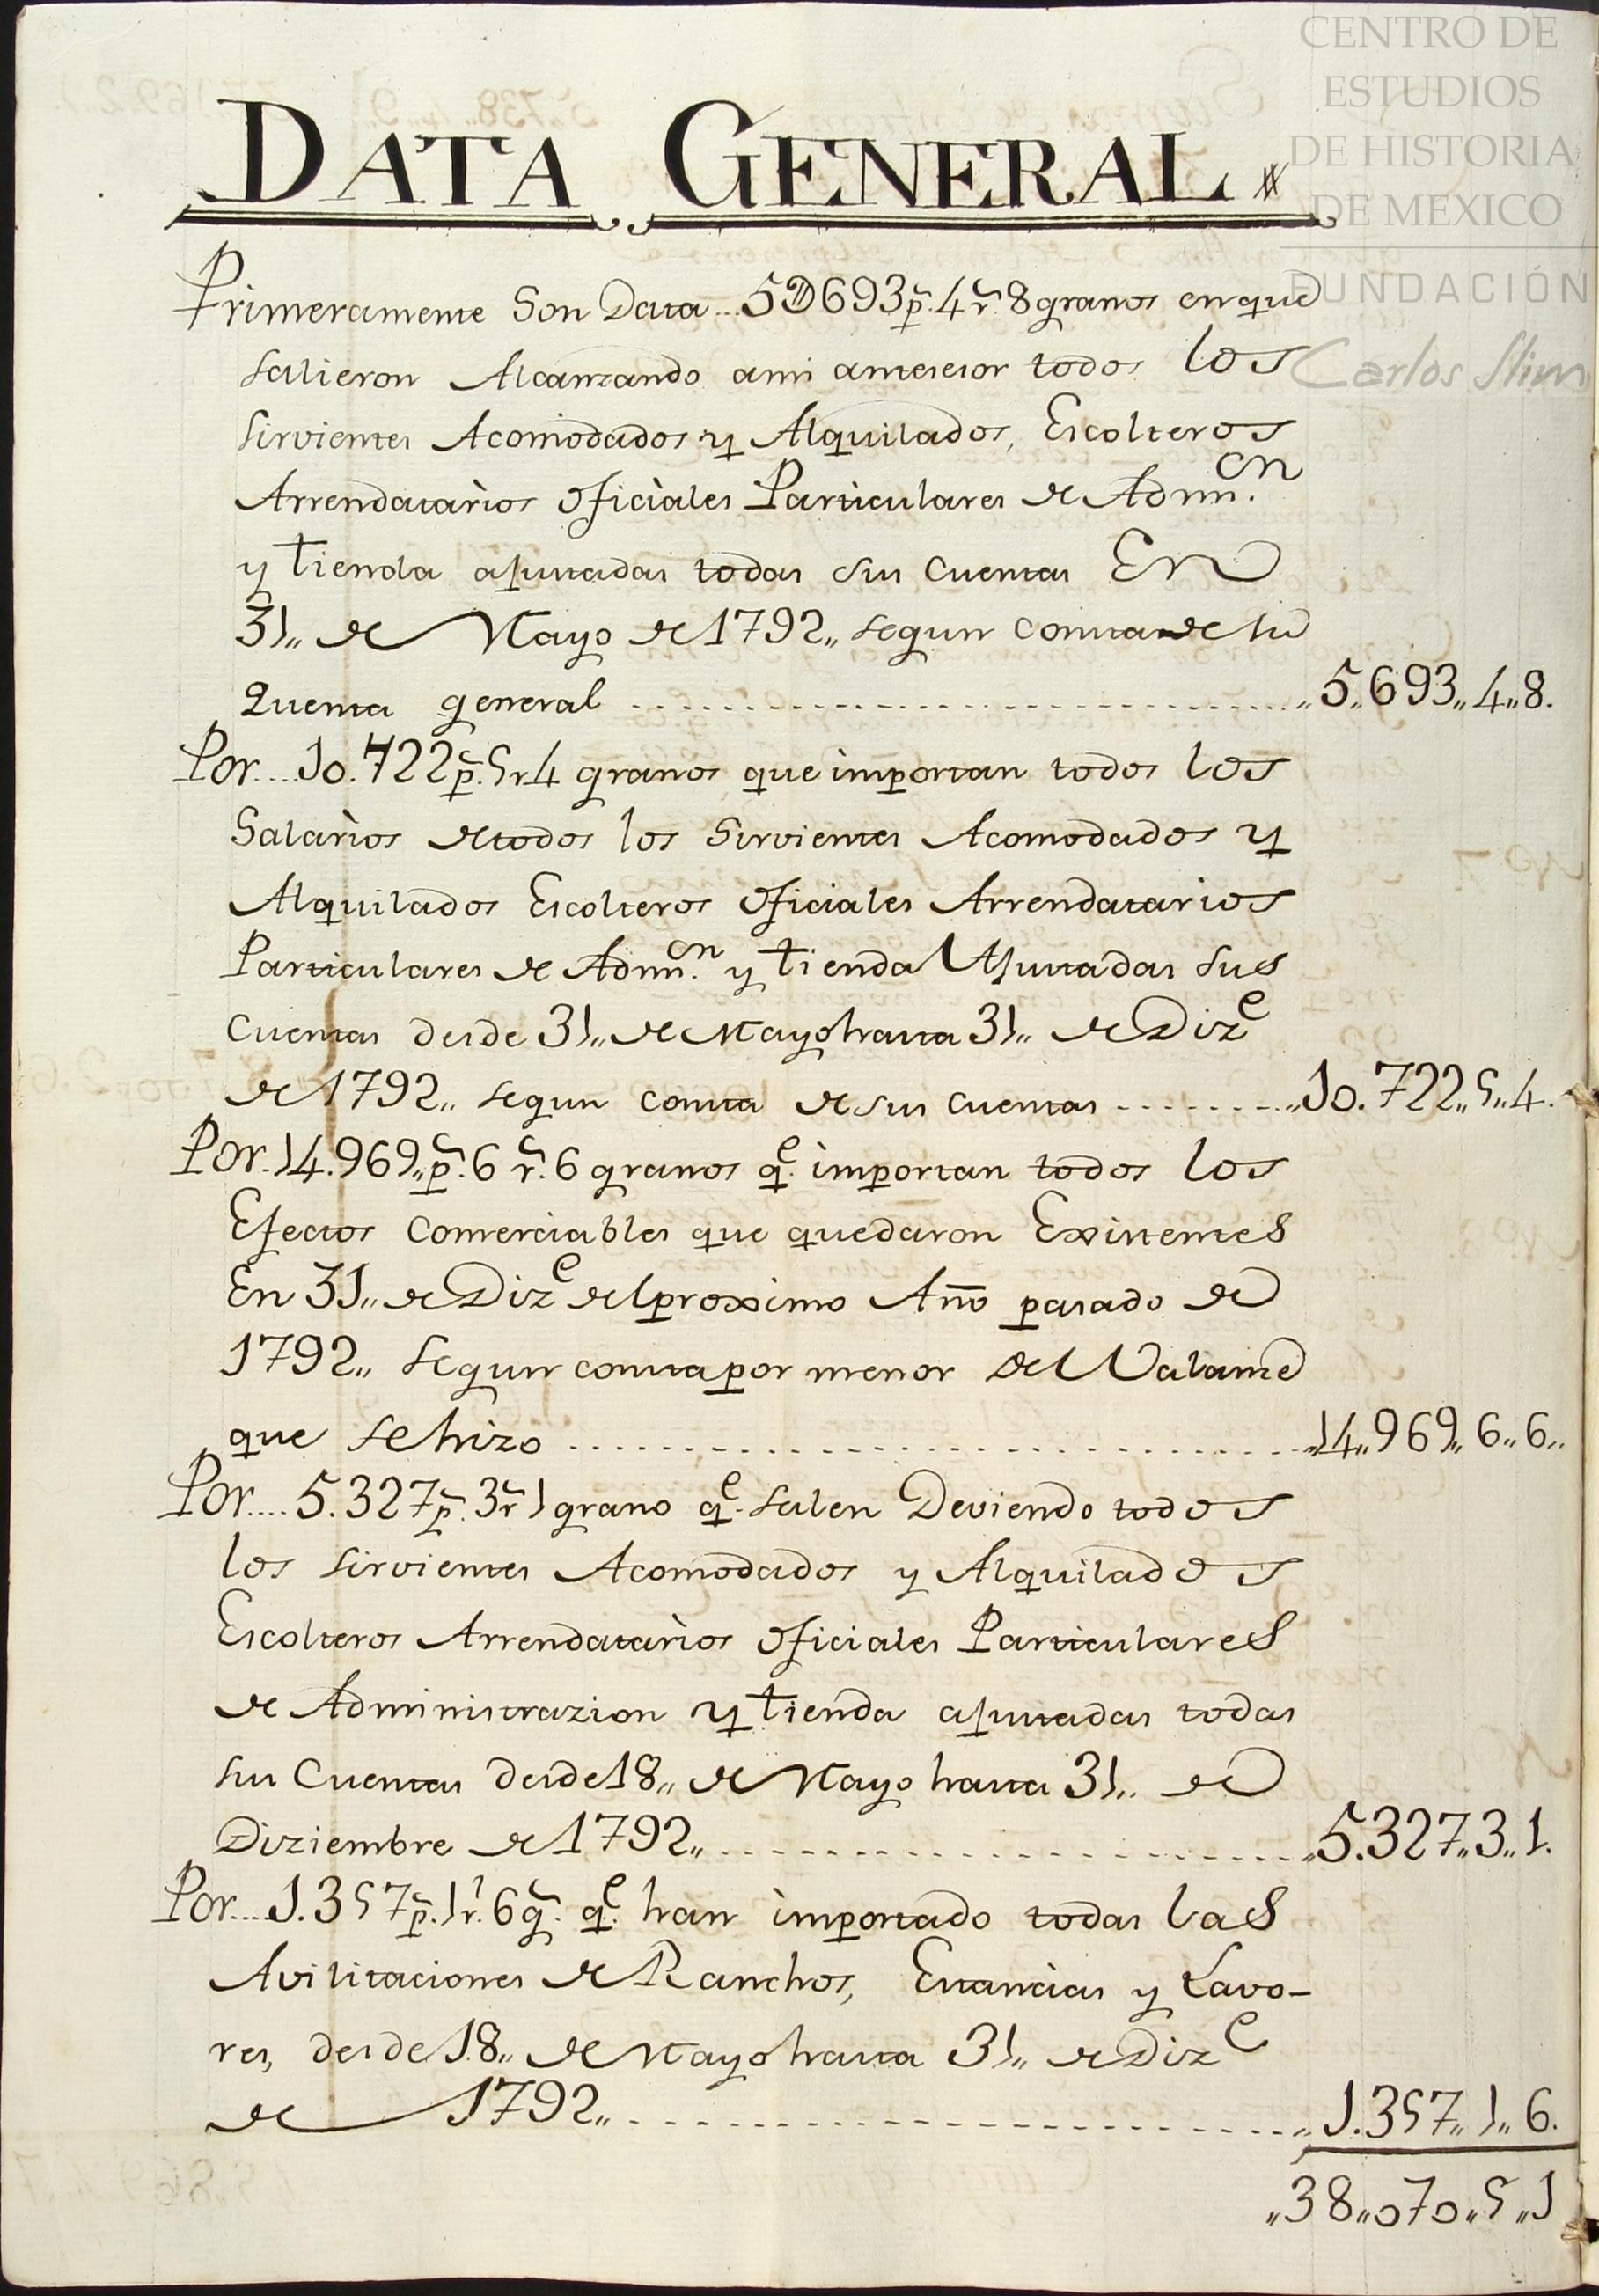 CENTRO DE
ESTUDIOS
DE HISTORIA
DE MEXICO
FUNDACIÓN
Carlos Slim
DATA GENERAL
Primeramente Son Data...5D693p.4r.8granos enque
salieron Alcanzando ami antecesor todos los
sirvientes Acomodados y Alquilados, Escolteros
Arrendatarios Oficiales Particulares de Admn.on
y tienda ajustadas todas sus cuentas En
31,, de Mayo de 1792,, segun consta de su
Quenta general ........ ,,5,,693,,4,,8.
Por....10.722p.5r4 granos que importan todos los
Salarios de todos los Sirvientes Acomodados y
Alquilados Escolteros Oficiales Arrendatarios
Particulares de Admn.on y tienda Ajustadas sus
cuentas desde 31,, de Mayo hasta 31,, de Dize
de 1792,, segun consta de sus cuentas ........ ,,10.722,,5,,4.
Por.14.969,,p.6 r.6 granos q.e importan todos los
Efectos comerciables que quedaron Existentes
En 31,, de Dize del proximo Año pasado de
1792,, segun consta por menor del Valance
que se hizo ........ ,,14,,969,,6,,6,,
Por....5.327p.3r1grano q.e salen Deviendo todos
los sirvientes Acomodados y Alquilados
Escolteros Arrendatarios Oficiales Particulares
de Administrazion y tienda ajustadas todas
sus Cuentas desde 18,, de Mayo hasta 31,, de
Diziembre de 1792,, ........ ,,5.327,,3,,1.
Por....1.357p.1r.6g. q.e han importado todas las
Avilitaciones de Ranchos, Estancias y Lavo-
res, desde 18,, de Mayo hasta 31,, de Dize
de 1792,, ........ ,,1.357,,1,,6.
,,38,,070,,5,,1